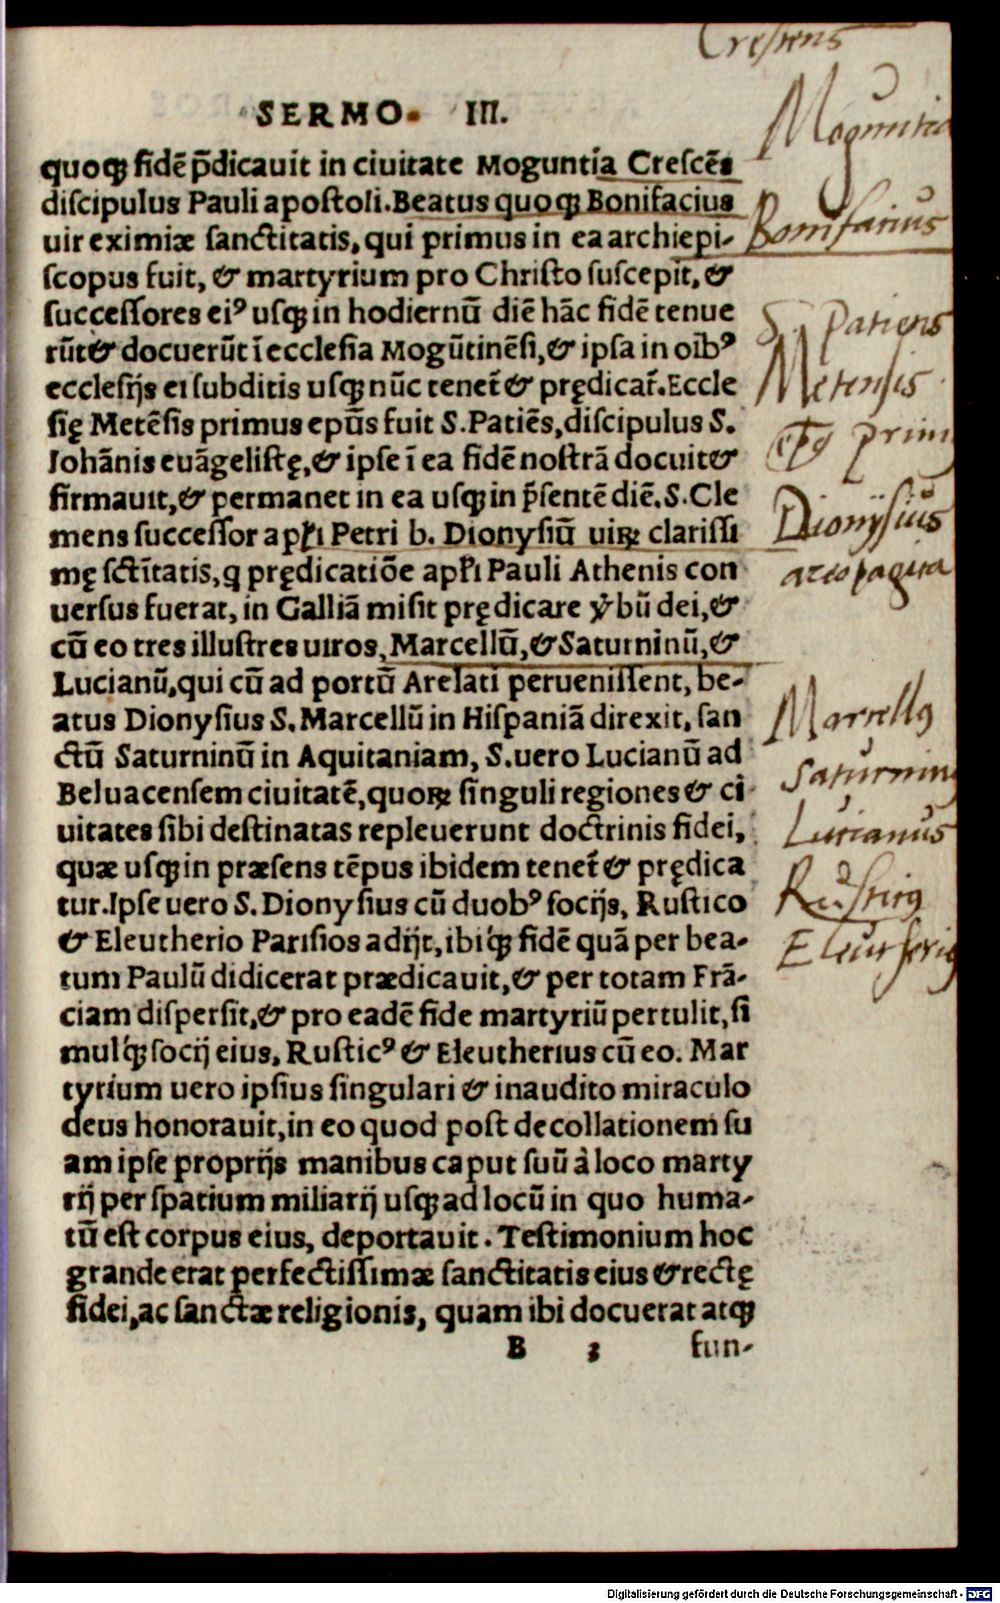 Crescens
SERMO. III.
quoqꝫ fidē p̄dicauit in ciuitate Moguntia Crescēs
discipulus Pauli apostoli. Beatus quoqꝫ Bonifacius
uir eximiæ sanctitatis, qui primus in ea archiepi-
scopus fuit, & martyrium pro Christo suscepit, &
successores eiꝰ usqꝫ in hodiernū diē hāc fidē tenue
rūt & docuerūt ī ecclesia Mogūtinēsi, & ipsa in oībꝰ
ecclesijs ei subditis usqꝫ nūc tenet̃ & prędicat̃. Eccle
się Metēsis primus ep̄us fuit S. Patiēs, discipulus S.
Iohānis euāgelistę, & ipse ī ea fidē nostrā docuit &
firmauit, & permanet in ea usqꝫ in p̄sentē diē. S. Cle
mens successor apłi Petri b. Dionysiū uiꝝ clarissi
mę sctītatis, q prędicatiōe apłi Pauli Athenis con
uersus fuerat, in Galliā misit prędicare v̓bū dei, &
cū eo tres illustres uiros, Marcellū, & Saturninū, &
Lucianū, qui cū ad portū Arelati peruenissent, be-
atus Dionysius S. Marcellū in Hispaniā direxit, san
ctū Saturninū in Aquitaniam, S. uero Lucianū ad
Beluacensem ciuitatē, quoꝝ singuli regiones & ci
uitates sibi destinatas repleuerunt doctrinis fidei,
quæ usqꝫ in præsens tēpus ibidem tenet̃ & prędica
tur. Ipse uero S. Dionysius cū duobꝰ socijs, Rustico
& Eleutherio Parisios adijt, ibiqꝫ fidē quā per bea-
tum Paulū didicerat prædicauit, & per totam Frā-
ciam dispersit, & pro eadē fide martyriū pertulit, si
mulqꝫ socij eius, Rusticꝰ & Eleutherius cū eo. Mar
tyrium uero ipsius singulari & inaudito miraculo
deus honorauit, in eo quod post decollationem su
am ipse proprijs manibus caput suū à loco marty
rij per spatium miliarij usqꝫ ad locū in quo huma-
tū est corpus eius, deportauit. Testimonium hoc
grande erat perfectissimæ sanctitatis eius & rectę
fidei, ac sanctæ religionis, quam ibi docuerat atqꝫ
B 3 fun-
Moguntia
Bonifacius
S. Patiens
Metensis
ep̄s prim
Dionysius
areopagita
Marcellꝰ
Saturnin
Lucianus
Rusticꝰ
Eleutheriꝰ
Digitalisierung gefördert durch die Deutsche Forschungsgemeinschaft - DFG